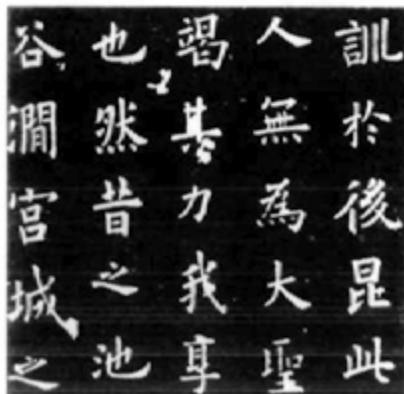 訓於後昆此
人無為大聖
竭其力我享
也然昔之池
谷澗宮城之